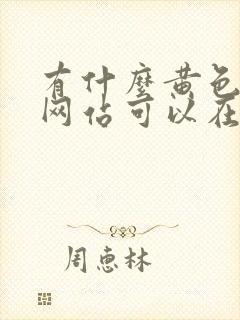 有什麼黄色
网站可以在
周惠林